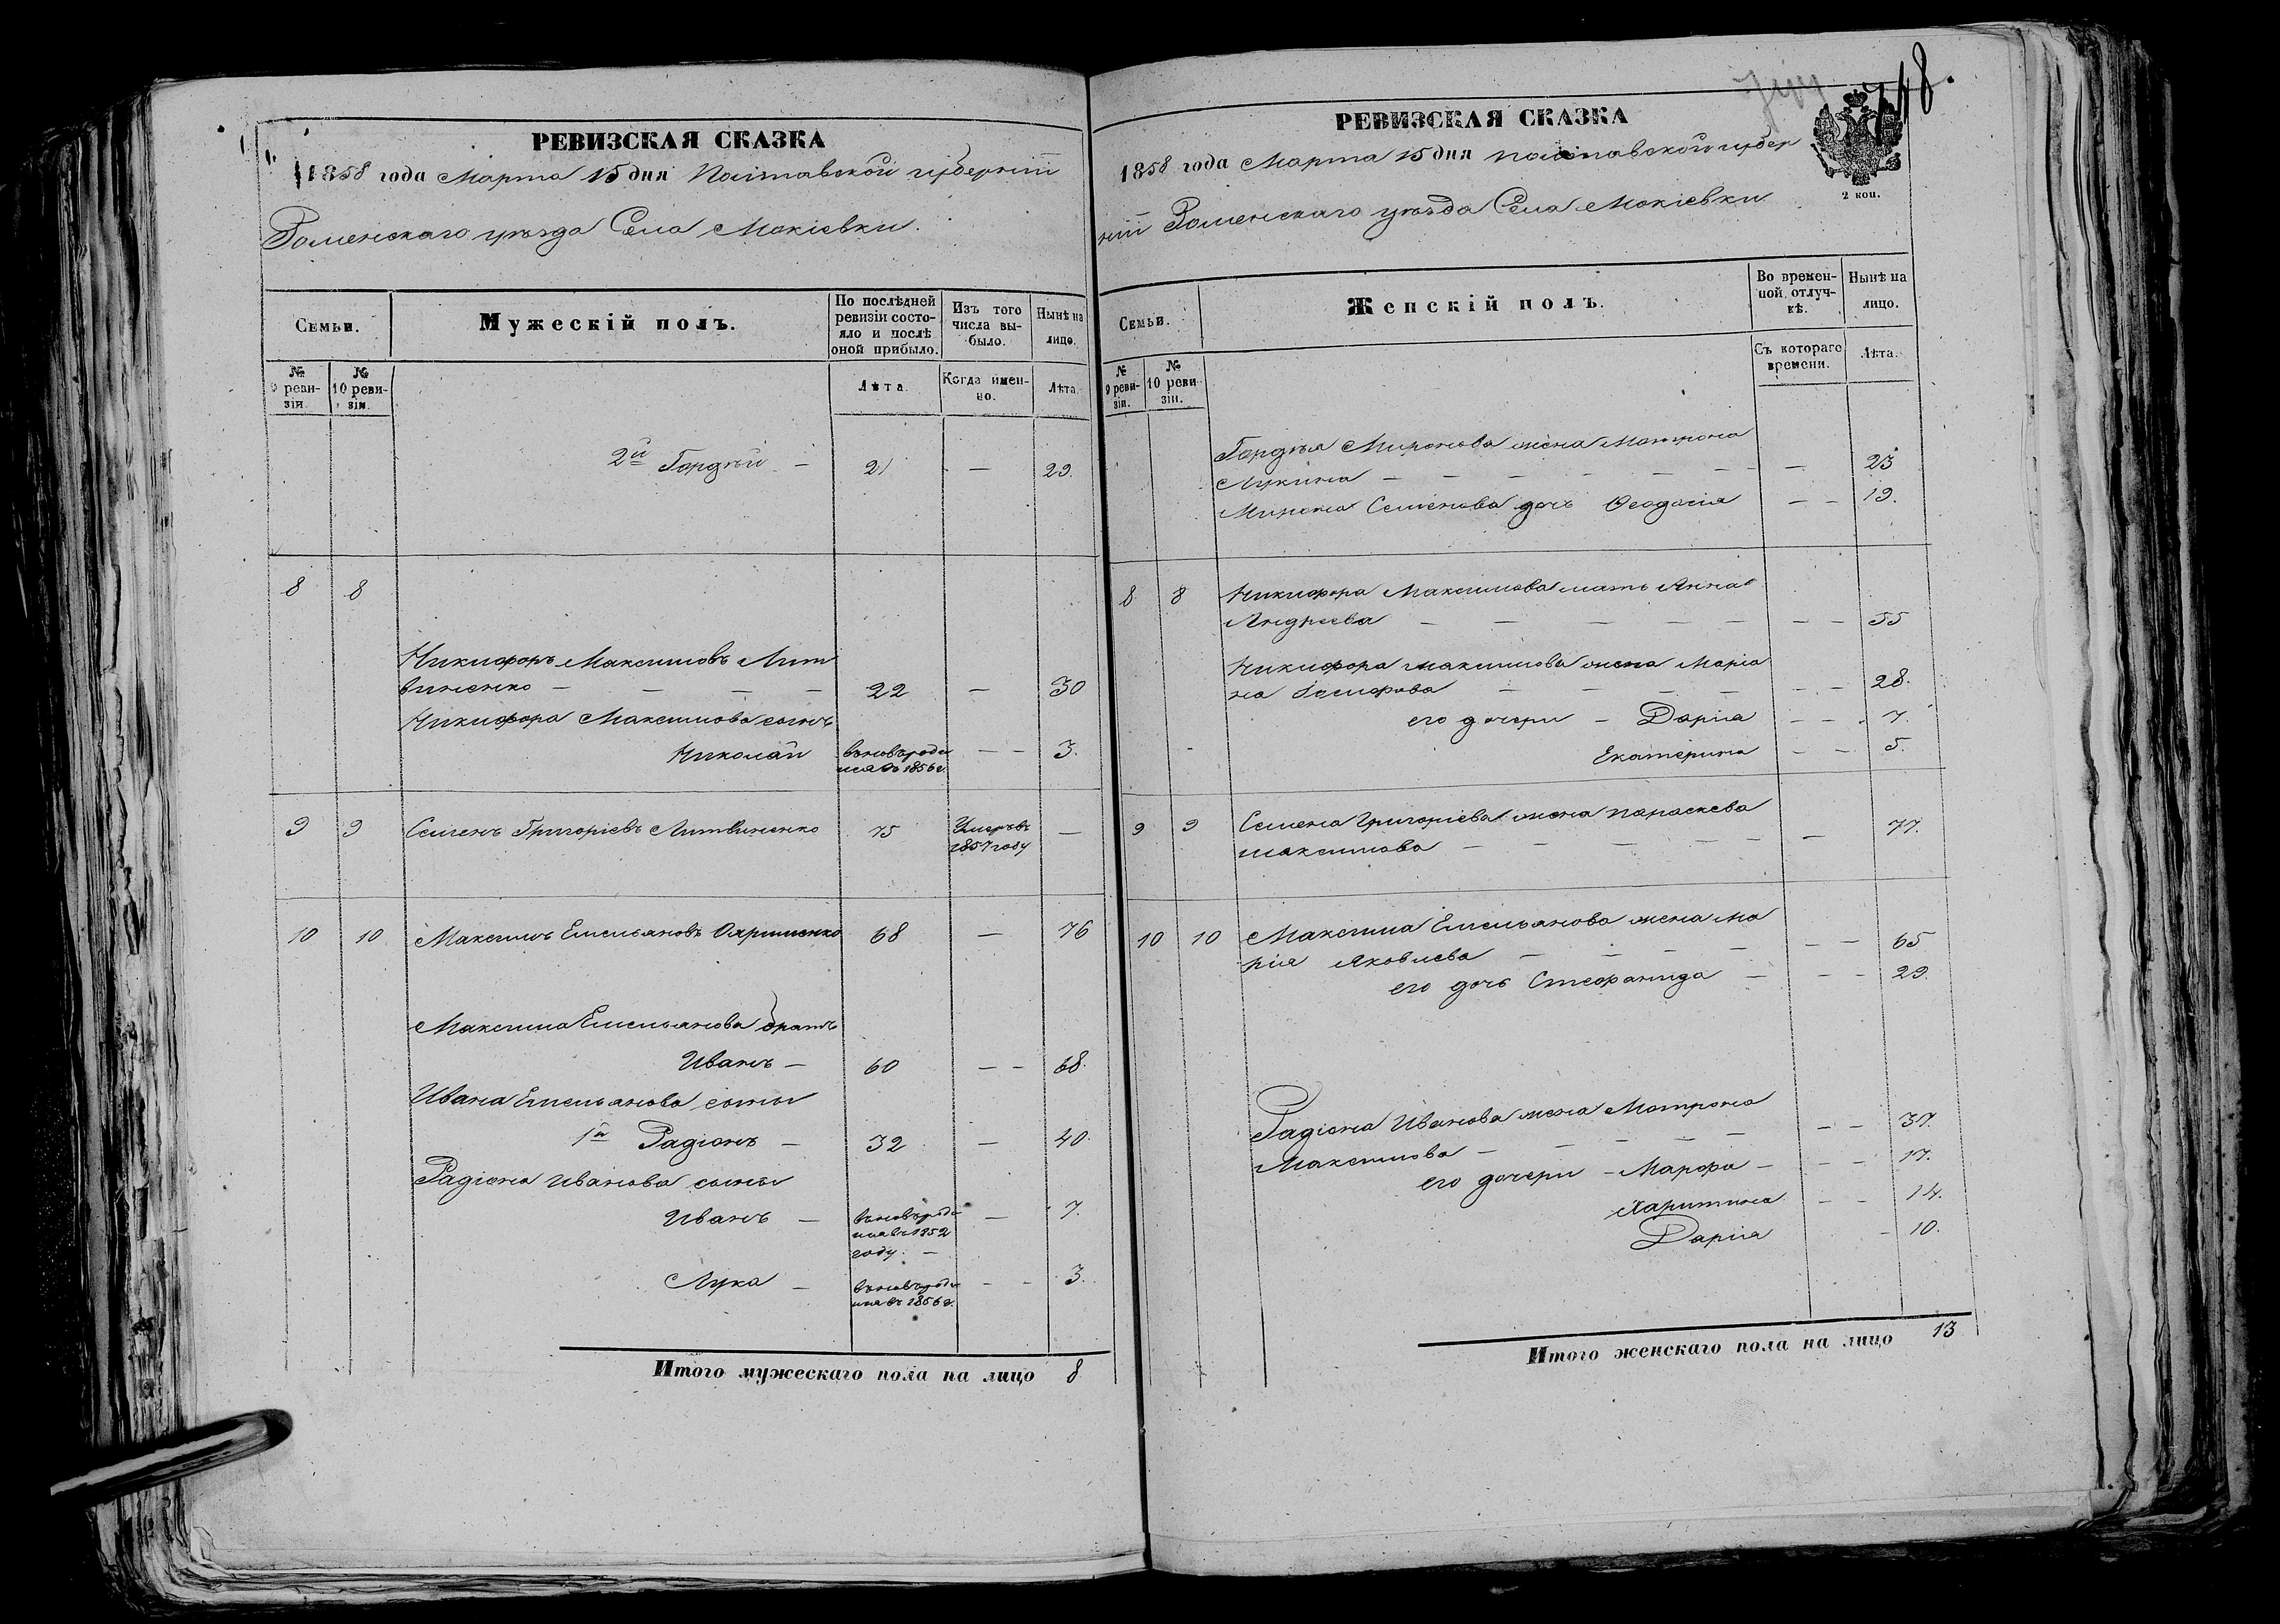 РЕВИЗСКАЯ СКАЗКА
1858 года Марта 15 дня Полтавской губерніи
Роменскаго уѣзда Села Мокіевки.
Семьи.
Мужескій полъ.
По послѣдней ревизіи состояло и послѣ оной прибыло.
Изъ того числа выбыло.
Нынѣ на лицо.
№ 9 ревизіи.
№ 10 ревизіи.
Лѣта.
Когда именно.
Лѣта.
2й Гордѣй — 21 — 29.
8 8
Никифоръ Максимовъ Лит
виненко — — — — 22 — 30
Никифора Максимова сынъ
Николай вновь роди — — 3.
лся въ 1856 г.
9 9 Семенъ Григоріевъ Литвиненко 75 Умеръ въ —
1857 году
10 10 Максимъ Емельяновъ 68 — 76
Максима Емельянова братъ
Иванъ — 60 — — 68.
Ивана Емельянова сыны
1й Радіонъ — 32 — 40.
Радіона Иванова сыны
Иванъ — вновь роди — 7.
лся въ 1852
году. —
Лука — вновь роди — — 3.
лся въ 1856 г.
Итого мужескаго пола на лицо 8
748.
РЕВИЗСКАЯ СКАЗКА
1858 года Марта 15 дня Полтавской губер
ніи Роменскаго уѣзда Села Мокіевки
2 коп.
Семьи.
Женскій полъ.
Во временной отлучкѣ.
Нынѣ на лицо.
№ 9 ревизіи.
№ 10 ревизіи.
Съ котораго времени.
Лѣта.
Гордѣя Миронова жена Матрона
Лукина — — — — — — 23
Мирона Семенова дочь Феодосія — — 19.
8 8 Никифора Максимова мать Анна
Андреева — — — — — — 55
Никифора Максимова жена Маріа
на — — — — — — 28.
его дочери — Дарія — — 7.
Екатерина — — 5.
9 9 Семена Григоріева жена Параскева
Максимова — — — — — 77.
10 10 Максима Емельянова жена Ма
рія Яковлева — — — — — 65
его дочь Стефанида — — — 29.
Радіона Иванова жена Матрона
Максимова — — — — — — 37.
его дочери — Марфа — — — 17.
Харитина — — 14.
Дарія — 10.
Итого женскаго пола на лицо 13